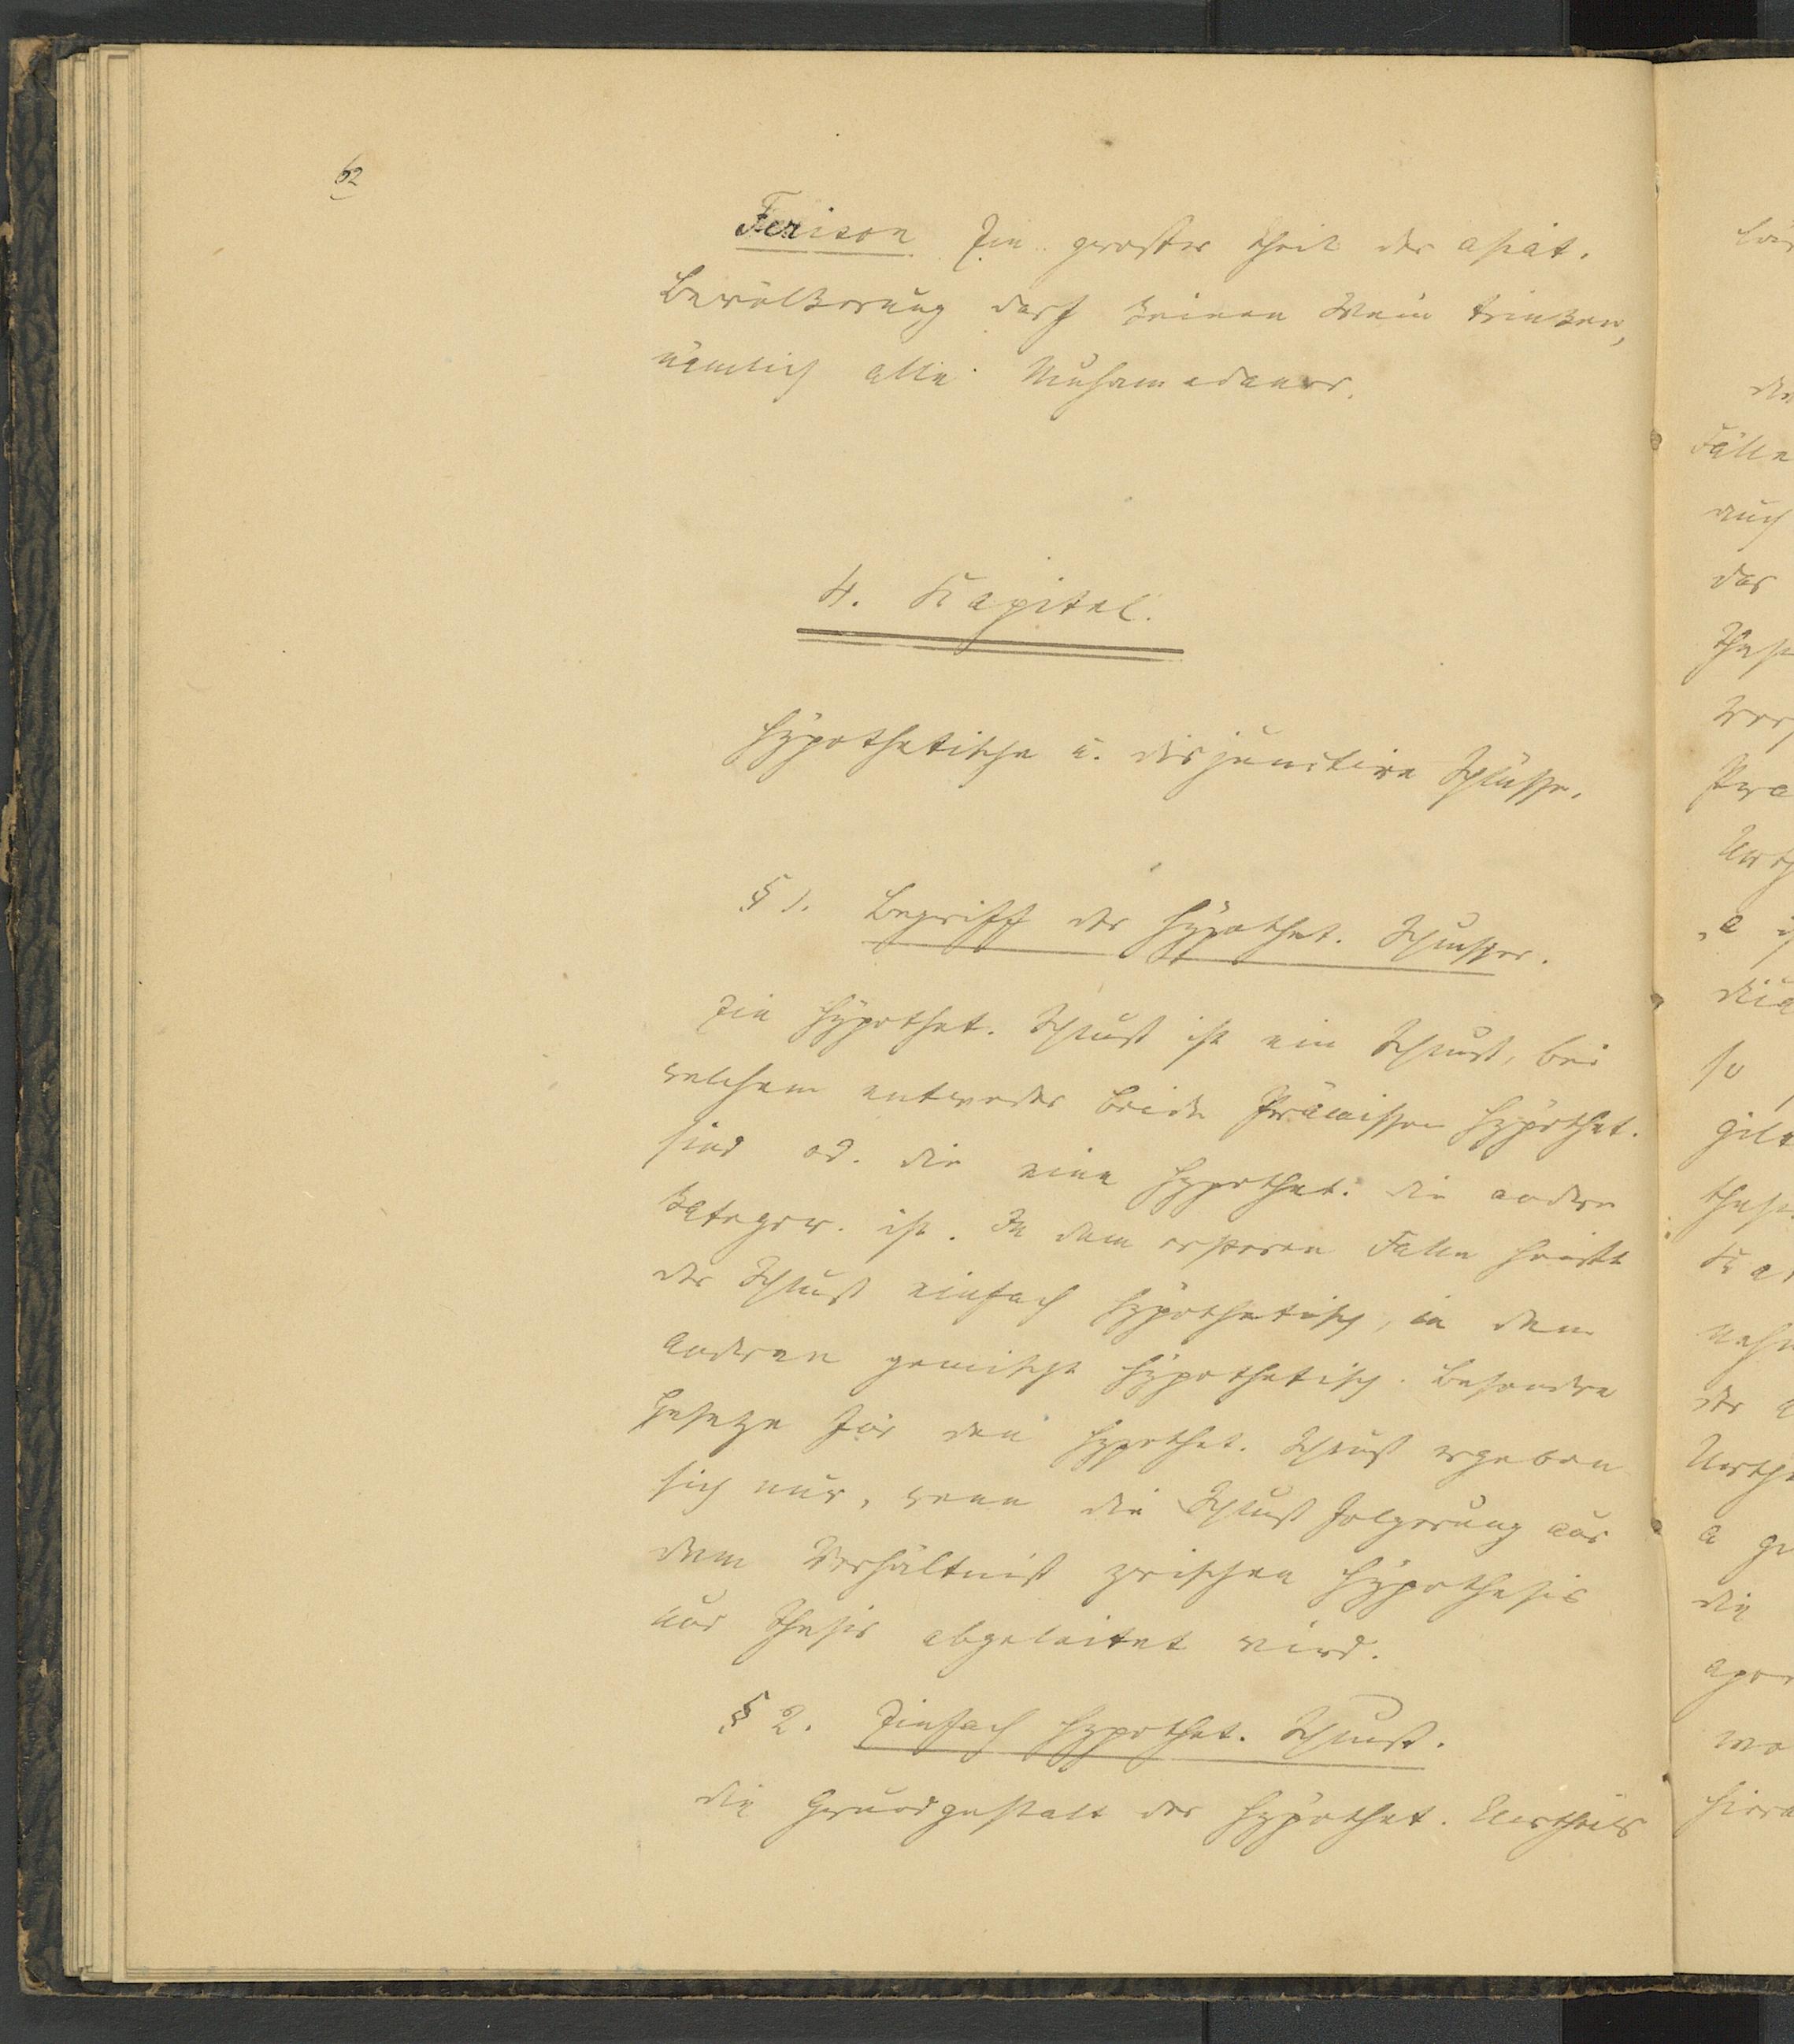 62
Ferison Ein großer Theil der asiat.
Bevölkerung darf keinen Wein trinken,
nämlich alle Muhamedaner.
4. Kapitel.
Hypothetische u. disjunctive Schlüsse.
§ 1. Begriff des hypothet. Schlusses.
Ein hypothet. Schluß ist ein Schluß, bei
welchem entweder beide Prämissen hypothet.
sind od. die eine hypothet. die andere
kategor. ist. In dem ersteren Falle heißt
der Schluß einfach hypothetisch, in dem
anderen gemischt hypothetisch. Besondere
Gesetze für den hypothet. Schluß ergeben
sich nur, wenn die Schlußfolgerung aus
dem Verhältniß zwischen Hypothesis
und Thesis abgeleitet wird.
§ 2. Einfach hypothet. Schluß.
Die Grundgestalt des hypothet. Urtheils
Fälle
auch
das
so
der
a
die